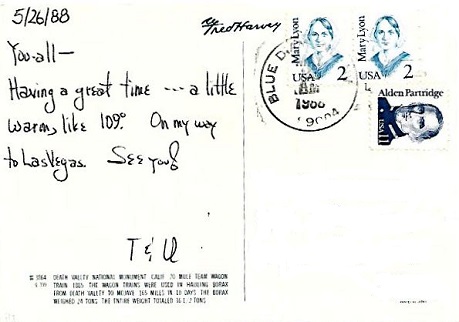 5/26/88
You-all—
Having a great time --- a little
warm, like 109°. On my way
to Las Vegas. See you!
T & U
by Fred Harvey
Mary Lyon
USA 2
Mary Lyon
USA 2
Alden Partridge
USA 11
BLUE D
1988
DEATH VALLEY NATIONAL MONUMENT CALIF 20 MULE TEAM WAGON
TRAIN THE WAGON TRAINS WERE USED IN HAULING BORAX
FROM DEATH VALLEY TO MOJAVE 165 MILES IN 10 DAYS THE BORAX
WEIGHED 24 TONS THE ENTIRE WEIGHT TOTALLED 36 1/2 TONS